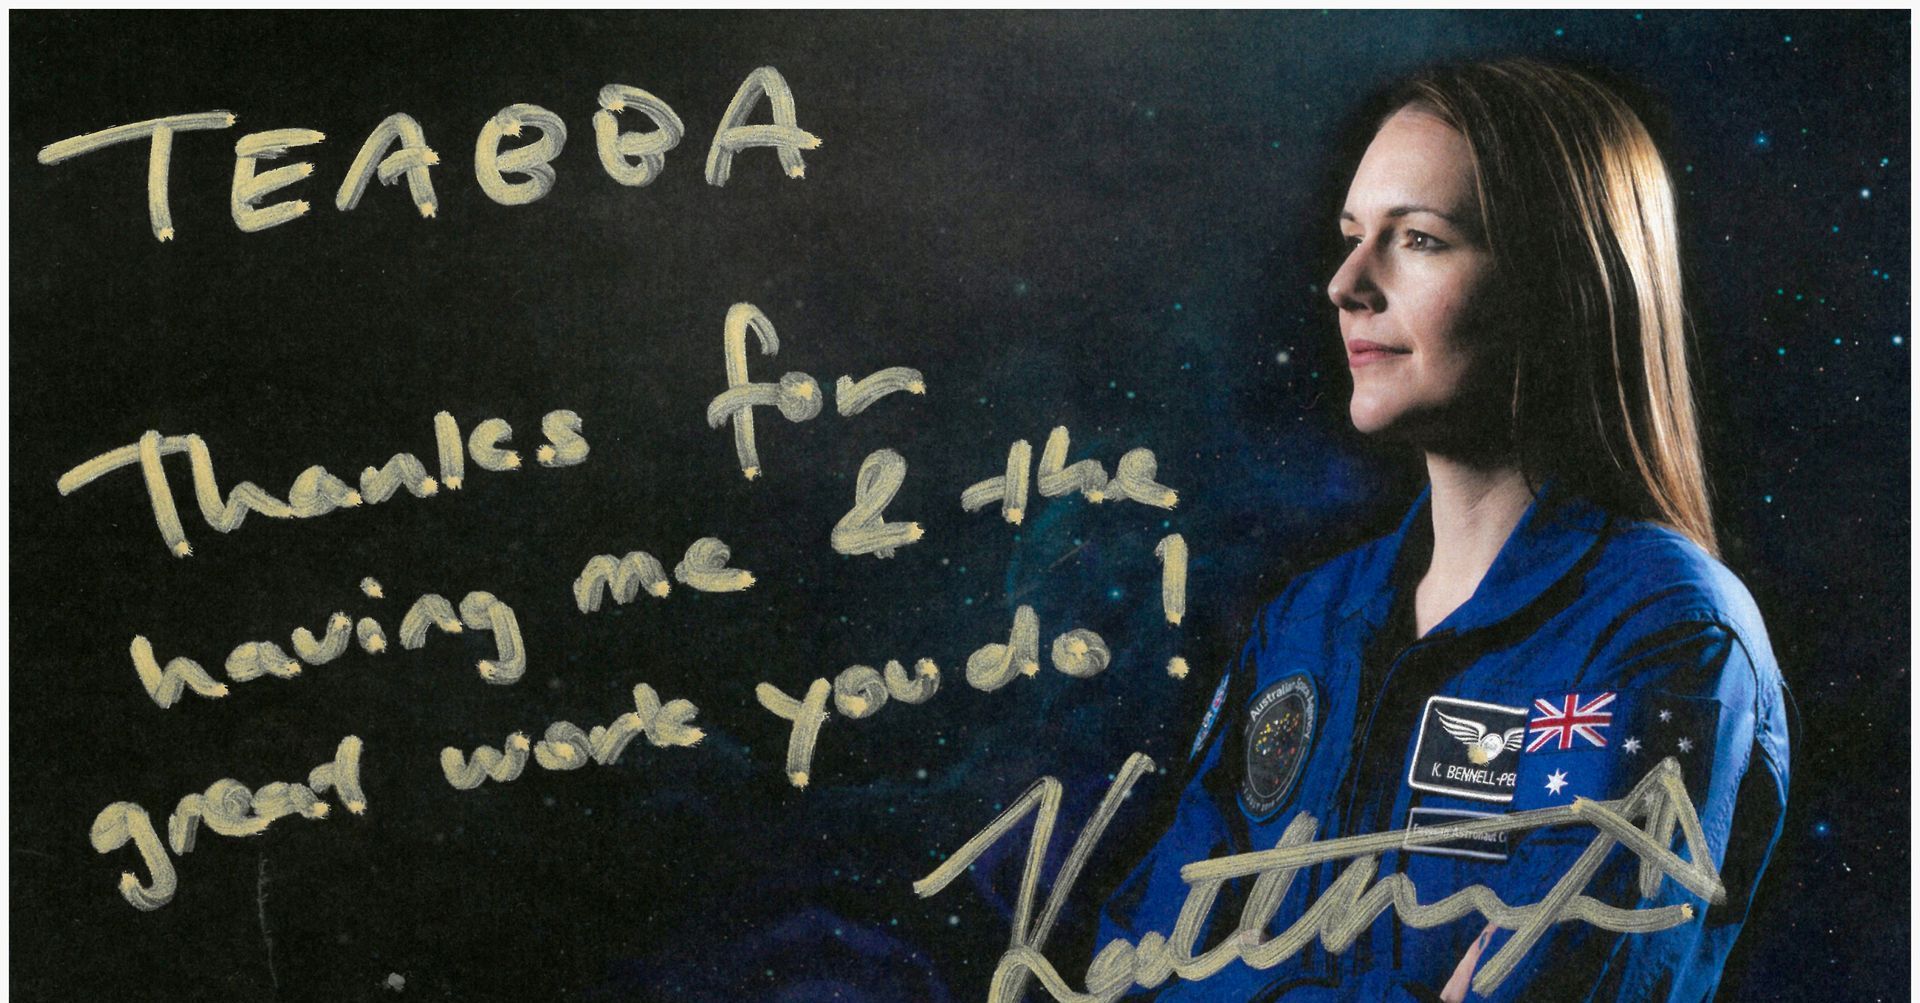 TEABBA
Thanks for
having me & the
great work you do!
Australian Space Agency
K. BENNELL-PE
European Astronaut C